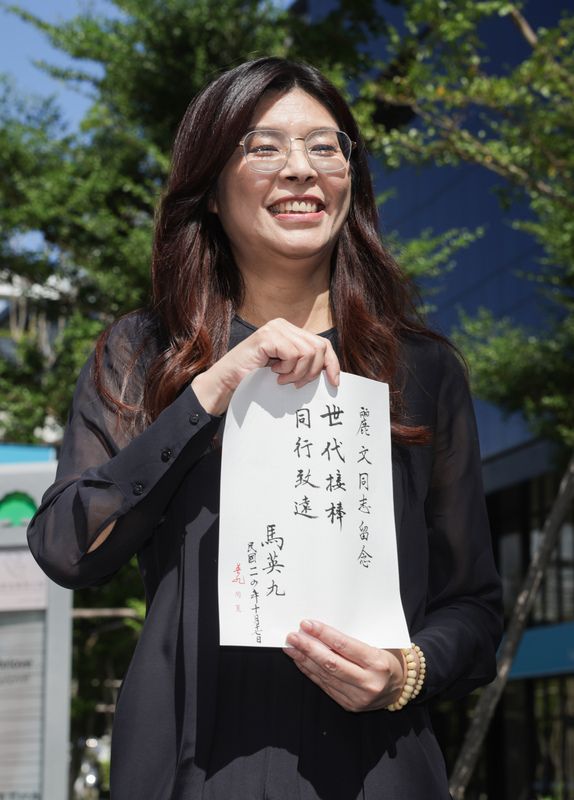 麗文同志留念
世代接棒
同行致遠
馬英九
民國一一四年十月廿日
英九